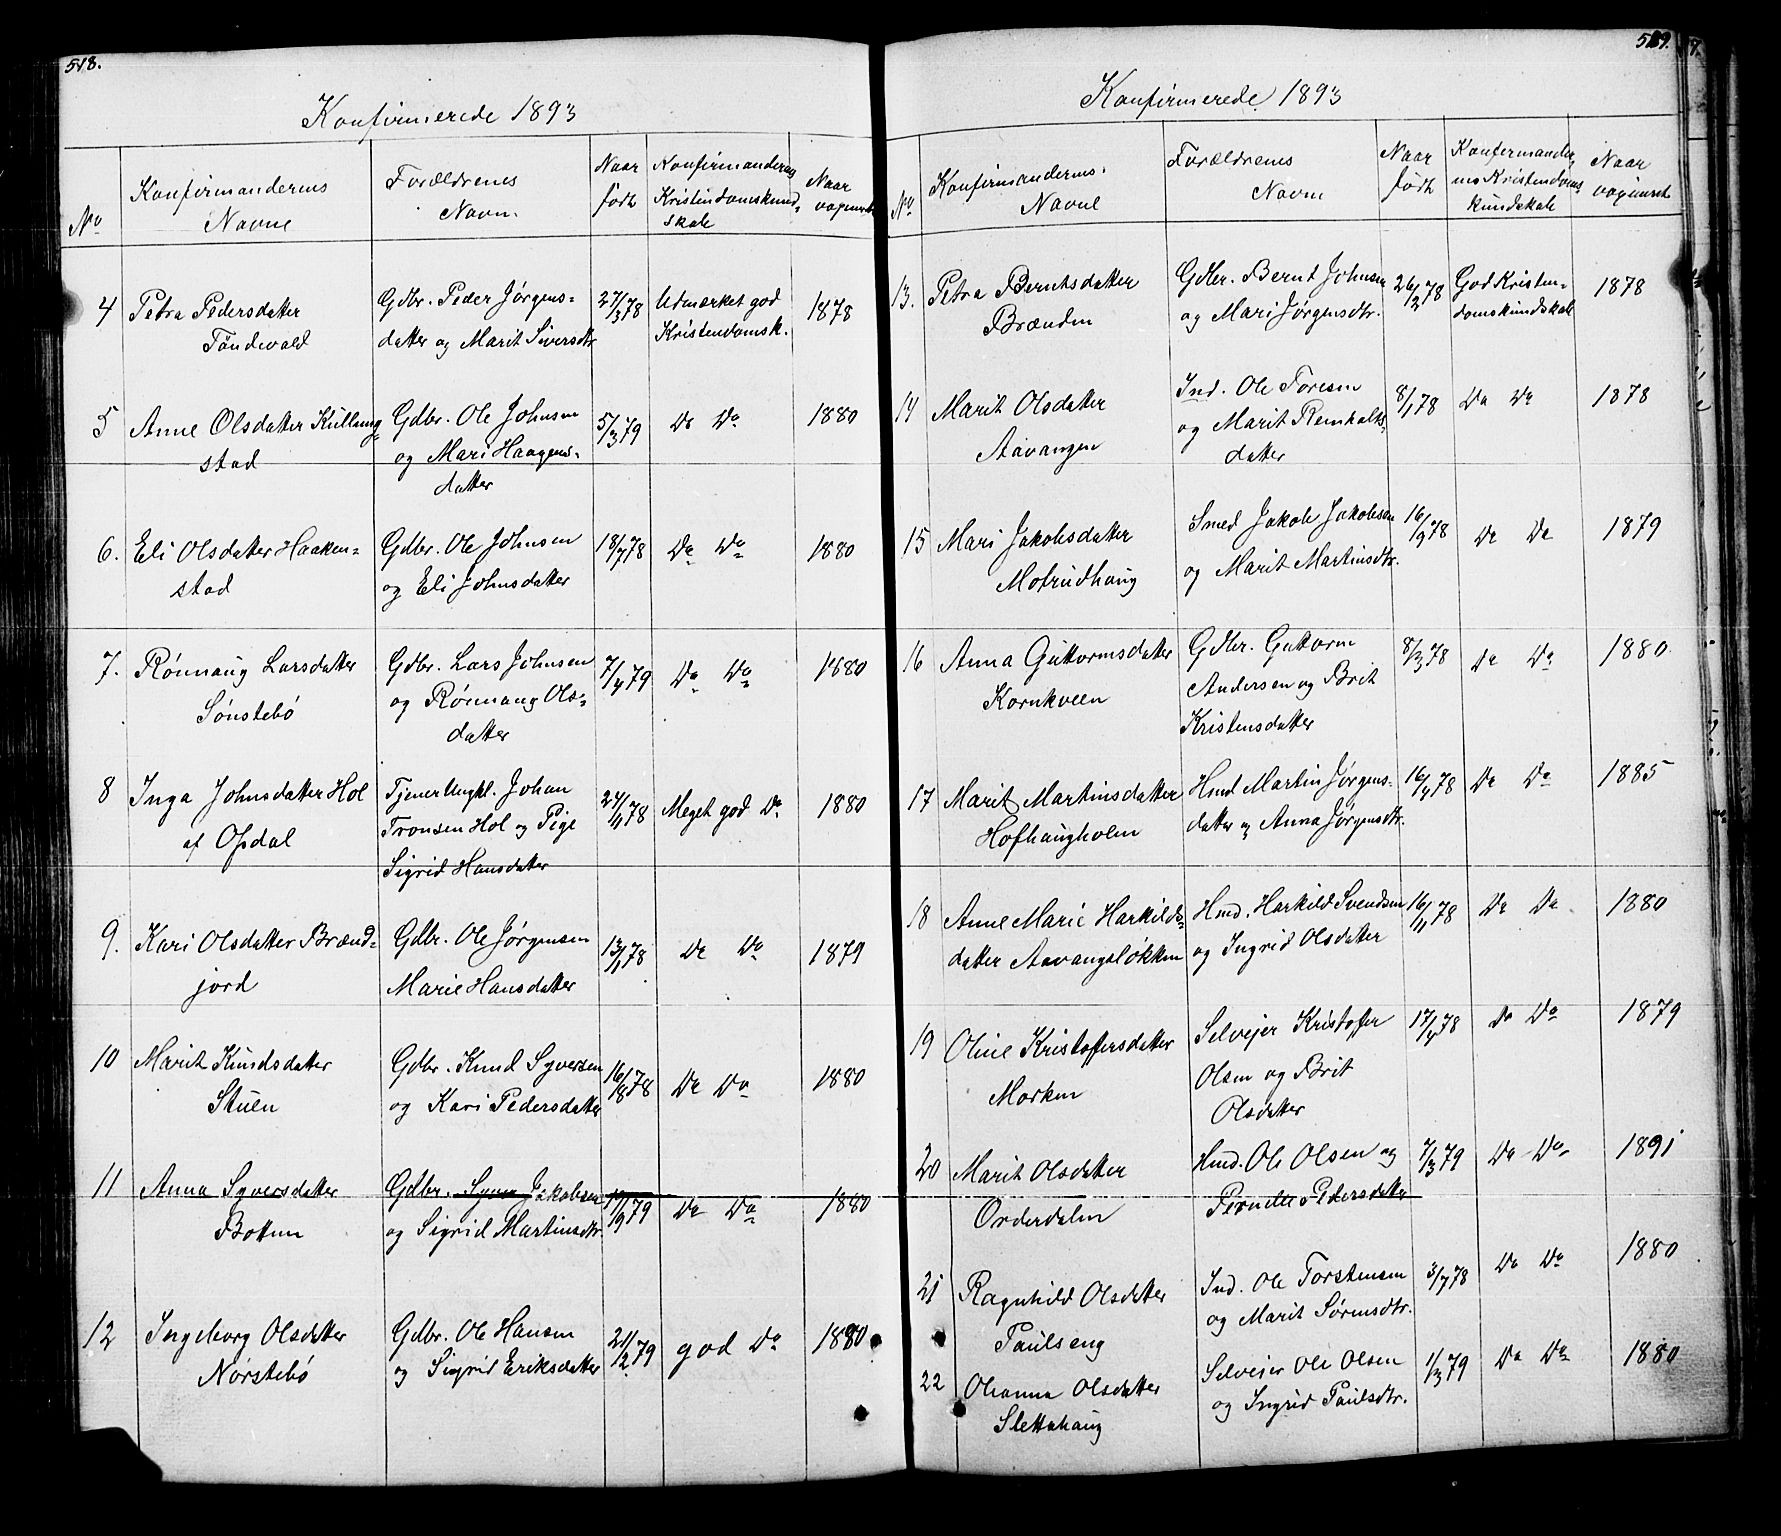 518.
Konfirmerede 1893
No
Konfirmandernes
Navne
Forældrenes
Navn.
Naar
født
Konfirmandernes
Kristindomskund-
skab
Naar
vaccineret
4
Petra Pedersdatter
Töndevold
Gdbr. Peder Jørgens-
datter og Marit Siversdtr
27/3 78
Udmærket god
Kristendomsk.
1878
5
Anne Olsdatter Kullung-
stad
Gdbr. Ole Johnsen
og Mari Haagens-
datter
5/3 79
Do Do
1880
6.
Eli Olsdatter Haaken-
stad
Gdbr. Ole Johnsen
og Eli Johnsdatter
18/7 78
Do Do
1880
7.
Rönnaug Larsdatter
Sønstebö
Gdbr. Lars Johnsen
og Rönnaug Ols-
datter
7/4 79
Do Do
1880
8
Inga Johnsdatter Hol
af Opdal
Tjener Ungkl. Johan
Tronsen Hol og Pige
Sigrid Hansdatter
24/11 78
Meget god Do
1880
9.
Kari Olsdatter Brænd-
jord
Gdbr. Ole Jørgensen
Marie Hansdatter
13/1 78
Do Do
1879
10
Marit Knudsdatter
Stuen
Gdbr. Knud Syversen
og Kari Pedersdatter
16/8 78
Do Do
1880
11
Anna Syversdatter
Botten
Gdbr. Syver Jakobsen
og Sigrid Martinsdtr.
79
Do Do
1880
12
Ingeborg Olsdatter
Nørstebö
Gdbr. Ole Hansen
og Sigrid Eriksdatter
21/12 79
god Do
1880
519.
Konfirmerede 1893
No
Konfirmandernes
Navne
Forældrenes
Navne
Naar
født
Konfirmander-
nes Kristendoms
kundskab
Naar
vaccineret
13.
Petra Berntsdatter
Brænden
Gdbr. Bernt Johnsen
og Mari Jørgensdtr.
26/2 78
God Kristen-
domskundskab
1878
14
Marit Olsdatter
Aavangen
Ind. Ole Toresen
og Marit Remholts-
datter
8/1 78
Do Do
1878
15
Mari Jakobsdatter
Motrudhaug
Smed Jakob Jakobsen
og Marit Martinsdtr.
16/9 78
Do Do
1879
16
Anna Guttormsdatter
Kornkveen
Gdbr. Guttorm
Andersen og Brit
Kristensdatter
8/3 78
Do Do
1880
17
Marit Martinsdatter
Hofhaugholen
Hmd Martin Jørgens-
datter og Anna Jørgensdtr.
16/4 78
Do Do
1885
18
Anne Marie Harkilds-
datter Aavangsløkken
Hmd. Harkild Svendsen
og Ingrid Olsdatter
16/11 78
Do Do
1880
19
Oline Kristoffersdatter
Morken
Selvejer Kristoffer
Olsen og Brit
Olsdatter
17/4 78
Do Do
1879
20
Marit Olsdatter
Orderdalen
Hmd. Ole Olsen og
Pernille Pedersdatter
7/3 79
Do Do
1891
21
Ragnhild Olsdatter
Paulseng
Ind. Ole Torstensen
og Marit Sørensdtr.
3/7 78
Do Do
1880
22
Oleanna Olsdatter
Slettahaug
Selvejer Ole Olsen
og Ingrid Paulsdtr.
1/3 79
Do Do
1880